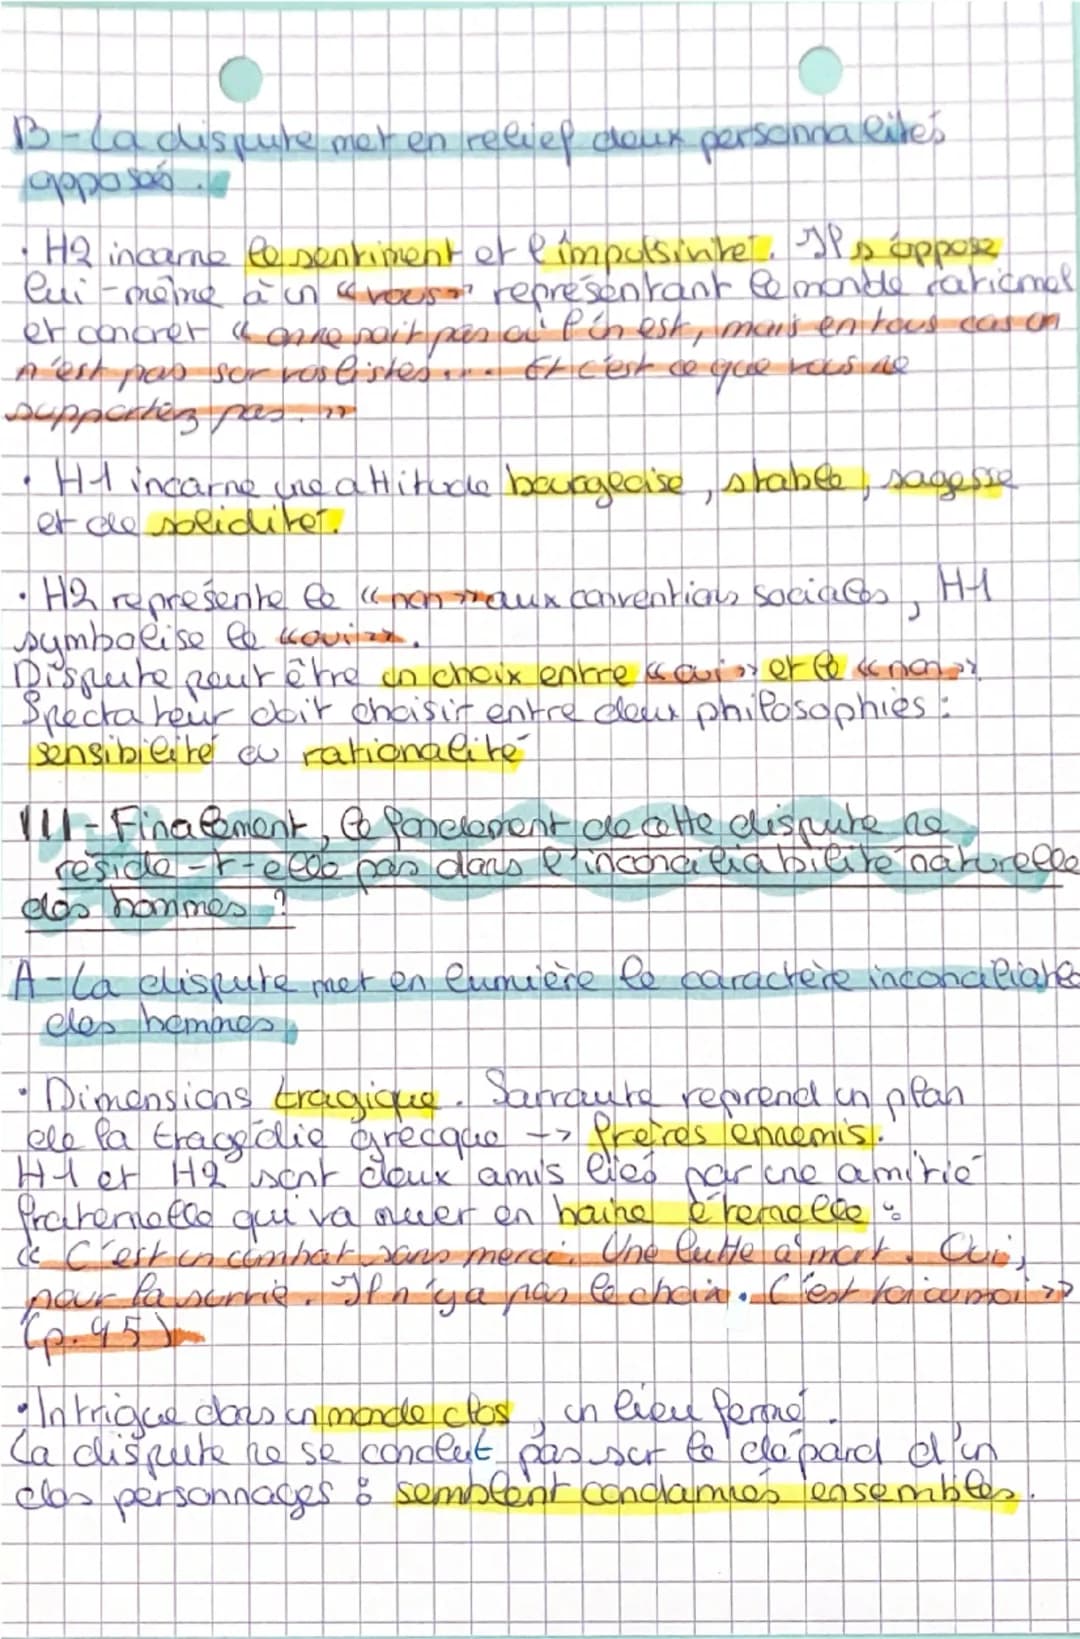 B-La dispute met en relief deux personnalités
opposés.
• H2 incarne le sentiment et l'impulsivité. Il s'oppose
lui-même à un «vous» représentant le monde rationnel
et concret «on ne sait pas où l'on est, mais en tous cas on
n'est pas sur vos listes... Et c'est ce que vous ne
supportez pas.»
• H1 incarne une attitude bourgeoise, stable, sagesse
et de solidité.
• H2 représente le «non» aux conventions sociales, H1
symbolise le «oui».
Dispute peut être un choix entre «oui» et le «non».
Spectateur doit choisir entre deux philosophies :
sensibilité ou rationalité
III-Finalement, le fondement de cette dispute ne
réside-t-elle pas dans l'inconciliabilité naturelle
des hommes ?
A-La dispute met en lumière le caractère inconciliable
des hommes.
• Dimensions tragique. Sarraute reprend un plan
de la tragédie grecque -> frères ennemis.
H1 et H2 sont deux amis liés par une amitié
fraternelle qui va muer en haine éternelle :
« C'est un combat sans merci. Une lutte à mort. Oui,
pour la survie. Il n'y a pas le choix. C'est toi ou moi »
(p.45)
• Intrigue dans un monde clos, un lieu fermé.
La dispute ne se conclut pas sur le dépard d'un
des personnages : semblent condamnés ensembles.